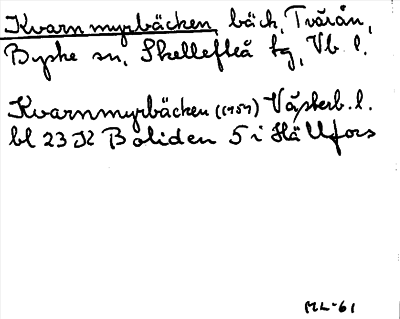 Kvarnmyrbäcken, bäck, Tvärån,
Byske sn, Skellefteå tg, Vb. l.
Kvarnmyrbäcken (1959) Västerb. l.
bl 23 K Boliden 5 i Hällfors
ML-61